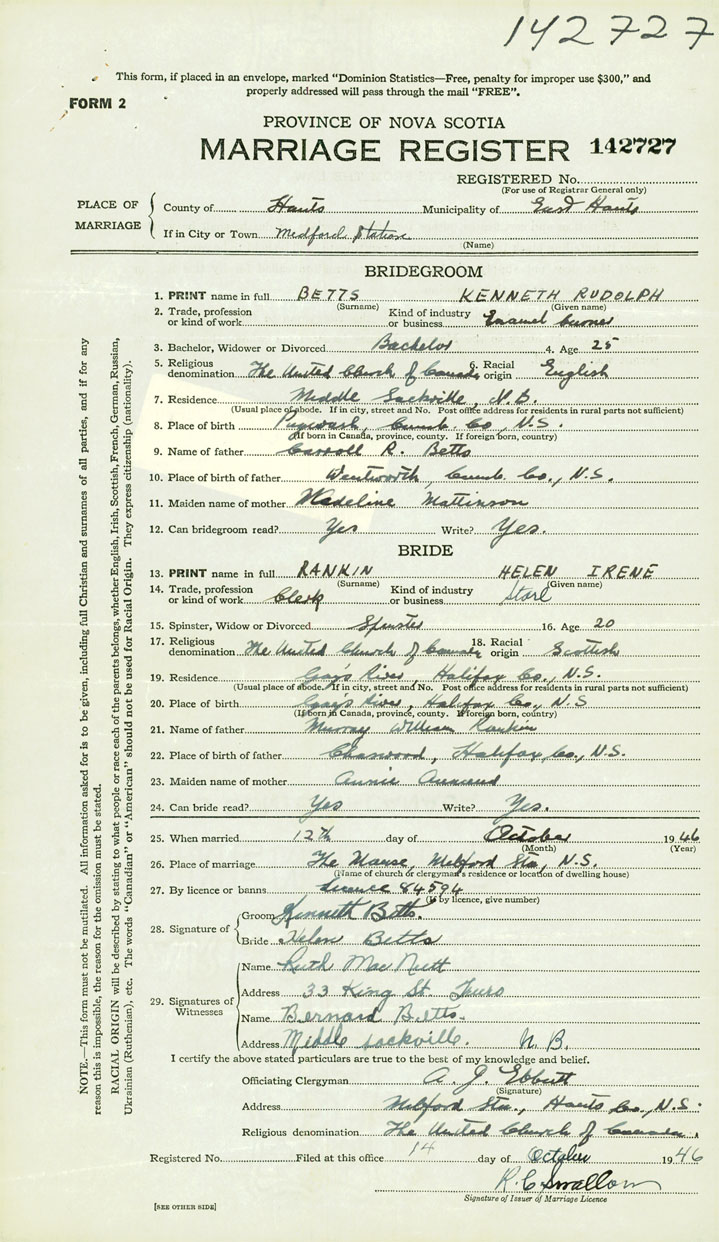 142727
This form, if placed in an envelope, marked "Dominion Statistics—Free, penalty for improper use $300," and
properly addressed will pass through the mail "FREE".
FORM 2
PROVINCE OF NOVA SCOTIA
MARRIAGE REGISTER 142727
REGISTERED No.
(For use of Registrar General only)
PLACE OF MARRIAGE
County of Hants Municipality of East Hants
If in City or Town Medford Station
(Name)
BRIDEGROOM
1. PRINT name in full BETTS KENNETH RUDOLPH
(Surname) (Given name)
2. Trade, profession or kind of work Kind of industry or business Enamel burner
3. Bachelor, Widower or Divorced Bachelor 4. Age 25
5. Religious denomination The United Church of Canada 6. Racial origin English
7. Residence Middle Sackville, N.B.
(Usual place of abode. If in city, street and No. Post office address for residents in rural parts not sufficient)
8. Place of birth Pugwash, Cumb. Co., N.S.
(If born in Canada, province, county. If foreign born, country)
9. Name of father Carroll R. Betts
10. Place of birth of father Wentworth, Cumb. Co., N.S.
11. Maiden name of mother Madeline Mattinson
12. Can bridegroom read? Yes Write? Yes.
BRIDE
13. PRINT name in full RANKIN HELEN IRENE
(Surname) (Given name)
14. Trade, profession or kind of work Clerk Kind of industry or business Store
15. Spinster, Widow or Divorced Spinster 16. Age 20
17. Religious denomination The United Church of Canada 18. Racial origin Scottish
19. Residence Gay's River, Halifax Co., N.S.
(Usual place of abode. If in city, street and No. Post office address for residents in rural parts not sufficient)
20. Place of birth Gay's River, Halifax Co., N.S
(If born in Canada, province, county. If foreign born, country)
21. Name of father Murray William Rankin
22. Place of birth of father Chaswood, Halifax Co., N.S.
23. Maiden name of mother Annie Annand
24. Can bride read? Yes Write? Yes.
25. When married 12th day of October 1946
(Month) (Year)
26. Place of marriage The Manse, Milford Sta., N.S.
(Name of church or clergyman's residence or location of dwelling house)
27. By licence or banns licence 84594
(If by licence, give number)
28. Signature of
Groom Kenneth Betts.
Bride Helen Betts
29. Signatures of Witnesses
Name Ruth MacNutt
Address 33 King St. Truro
Name Bernard Betts.
Address Middle Sackville. N.B.
I certify the above stated particulars are true to the best of my knowledge and belief.
Officiating Clergyman A. J. Ebbutt
(Signature)
Address Milford Sta., Hants Co., N.S.
Religious denomination The United Church of Canada.
Registered No. Filed at this office 14 day of October 1946
R. C. Swallow
Signature of Issuer of Marriage Licence
[SEE OTHER SIDE]
NOTE.—This form must not be mutilated. All information asked for is to be given, including full Christian and surnames of all parties, and if for any
reason this is impossible, the reason for the omission must be stated.
RACIAL ORIGIN will be described by stating to what people or race each of the parents belongs, whether English, Irish, Scottish, French, German, Russian,
Ukrainian (Ruthenian), etc. The words "Canadian" or "American" should not be used for Racial Origin. They express citizenship (nationality).